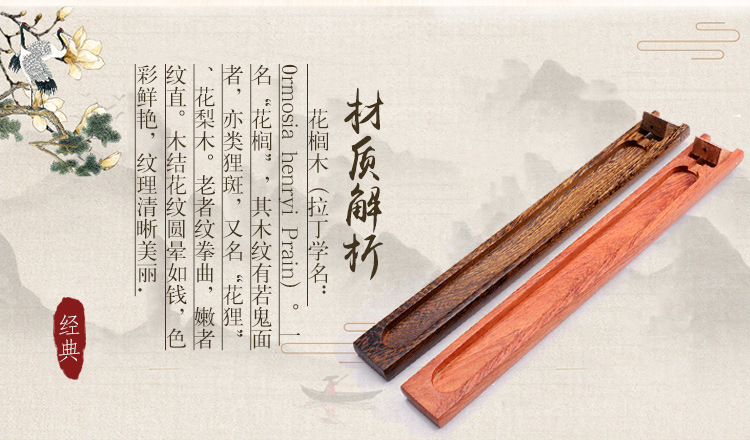 材质解析
花榈木（拉丁学名：
Ormosia henryi Prain）。一
名“花榈”，其木纹有若鬼面
者，亦类狸斑，又名“花狸”
、花梨木。老者纹拳曲，嫩者
纹直。木结花纹圆晕如钱，色
彩鲜艳，纹理清晰美丽.
经典